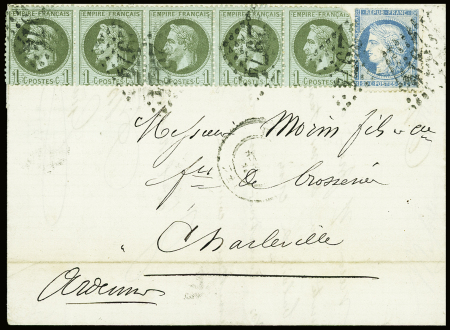 EMPIRE FRANÇAIS EMPIRE FRANÇAIS EMPIRE FRANÇAIS EMPIRE FRANÇAIS EMPIRE FRANÇAIS REPUB FRANC
1 C POSTES C 1 1 C POSTES C 1 1 C POSTES C 1 1 C POSTES C 1 1 C POSTES C 1 POSTES
Messieurs Morin fils
de brosserie
Charleville
Ardennes